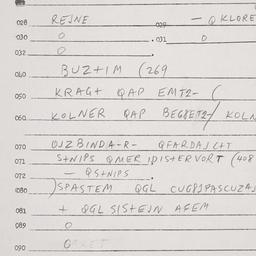 028 REJNE 029 — Q KLORE
030 0 . 031 0
032 0
040 BUZ+IM (269
050 KRAG+ QAP EMT2- (
060 KOLNER QAP BEGBET2-/ KOLN
070 OJZBINDA-R- QFARDAJLH+
071 S+NIPS QMERIDIS+ERVORT (408
072 — QS+NIPS .
080 )SPASTEM QGL CUGPJPASCUZAJ
081 + QGL SISTEJN AFEM
089 0
090